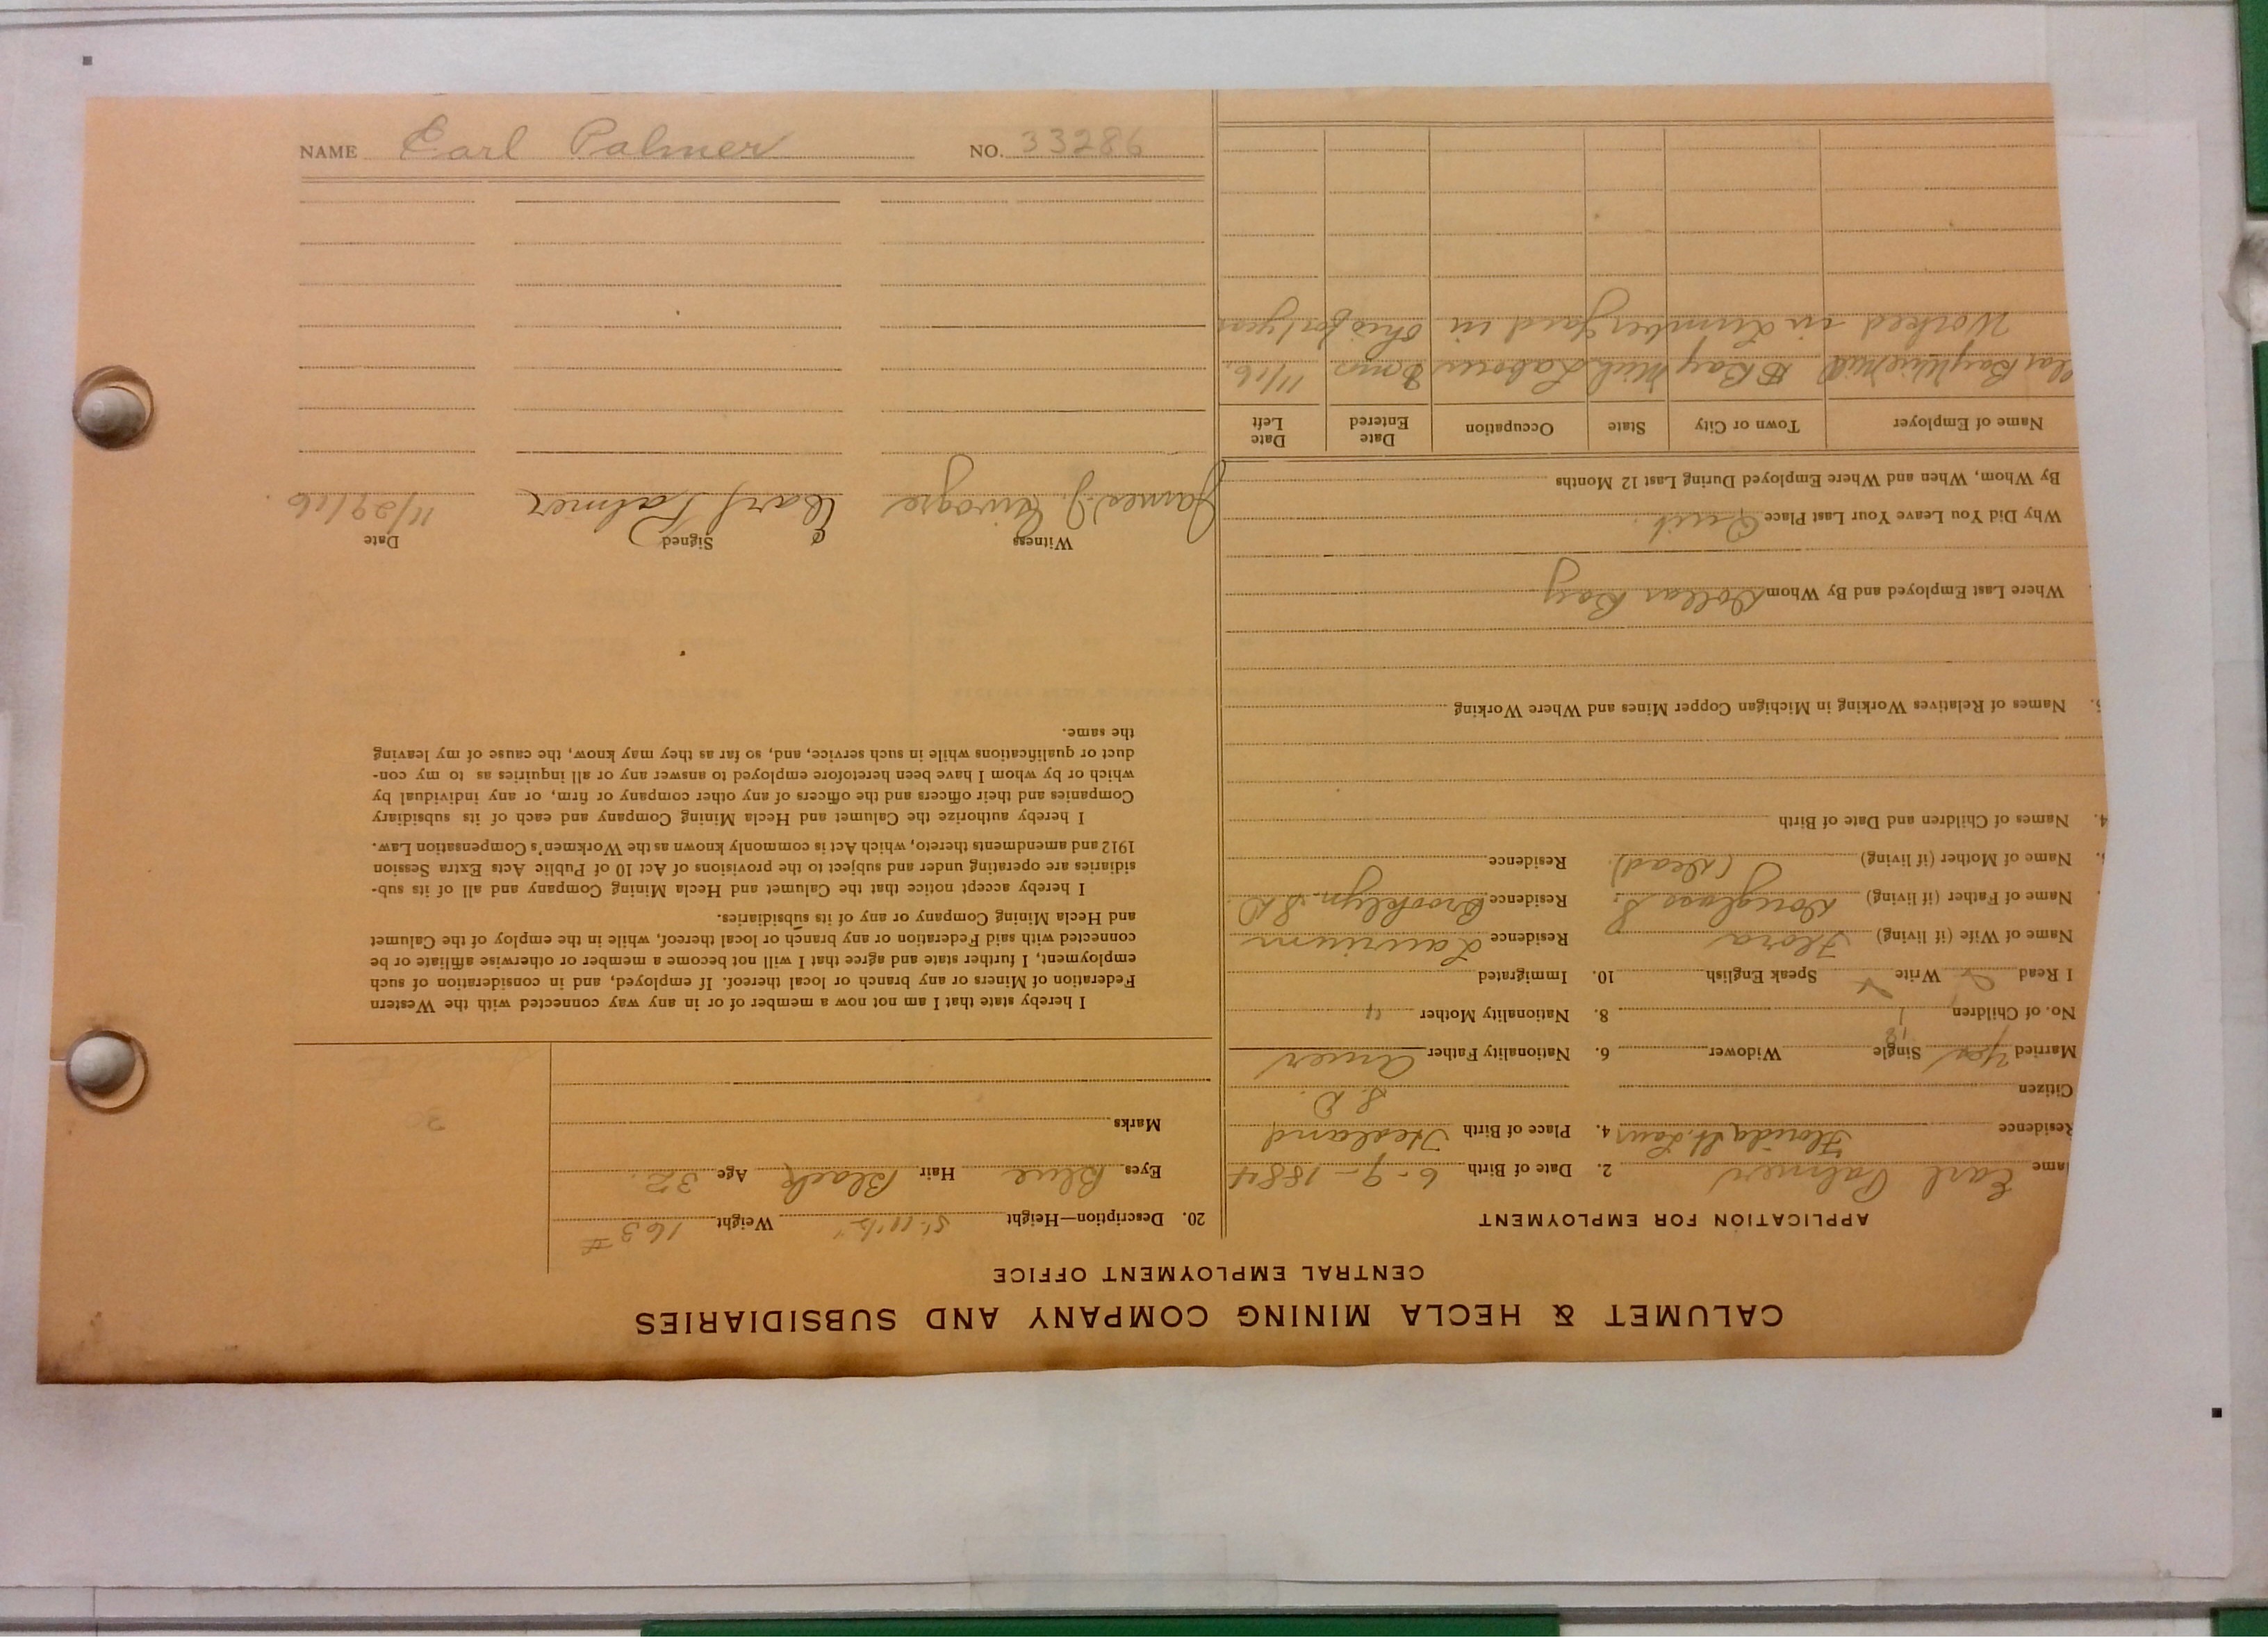 CALUMET & HECLA MINING COMPANY AND SUBSIDIARIES
CENTRAL EMPLOYMENT OFFICE
APPLICATION FOR EMPLOYMENT
ame Earl Palmer 2. Date of Birth 6-9-1884
Residence Florida 4. Place of Birth Hesland
S. D.
Citizen
Married Yes Single Widower 6. Nationality Father Amer
No. of Children 1 8. Nationality Mother "
I Read Write Speak English 10. Immigrated
Name of Wife (if living) Flora Residence Laurium
Name of Father (if living) Douglass S. Residence Brooklyn S.D.
Name of Mother (if living) (Dead) Residence
4. Names of Children and Date of Birth
Names of Relatives Working in Michigan Copper Mines and Where Working
Where Last Employed and By Whom Dollar Bay
Why Did You Leave Your Last Place Quit.
By Whom, When and Where Employed During Last 12 Months
Name of Employer Town or City State Occupation Date Entered Date Left
lar Bay Wire Mill D Bay Mich Laborer mos 11/16
Worked in Lumber Yard in Ohio for 1 year
20. Description—Height 5' 11 1/2" Weight 163 #
Eyes Blue Hair Black Age 32
Marks
I hereby state that I am not now a member of or in any way connected with the Western
Federation of Miners or any branch or local thereof. If employed, and in consideration of such
employment, I further state and agree that I will not become a member or otherwise affiliate or be
connected with said Federation or any branch or local thereof, while in the employ of the Calumet
and Hecla Mining Company or any of its subsidiaries.
I hereby accept notice that the Calumet and Hecla Mining Company and all of its sub-
sidiaries are operating under and subject to the provisions of Act 10 of Public Acts Extra Session
1912 and amendments thereto, which Act is commonly known as the Workmen's Compensation Law.
I hereby authorize the Calumet and Hecla Mining Company and each of its subsidiary
Companies and their officers and the officers of any other company or firm, or any individual by
which or by whom I have been heretofore employed to answer any or all inquiries as to my con-
duct or qualifications while in such service, and, so far as they may know, the cause of my leaving
the same.
Witness Signed Date
James J. Earl Palmer 11/29/16
NAME Earl Palmer NO. 33286